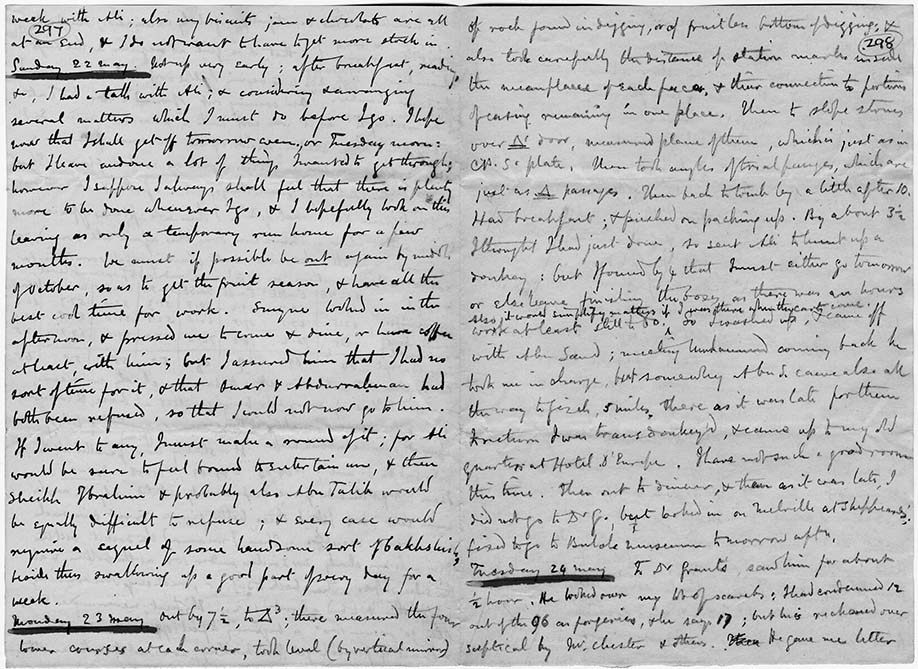 297
week with Ali; also my biscuits jam & chocolate are all
at an end, & I do not want to have to get more stock in.
Sunday 22 May. Not up very early; after breakfast, reading
&c, I had a talk with Ali; & considering & arranging
several matters which I must do before I go. I hope
now that I shall get off tomorrow even, or Tuesday morn:
but I leave undone a lot of things I wanted to get through;
however I suppose I always shall feel that there is plenty
more to be done whenever I go, & I hopefully look on this
leaving as only a temporary run home for a few
months. We must if possible be out again by middle
of October, so as to get the fruit season, & have all the
best cool time for work. Smyne looked in in the
afternoon, & pressed me to come & dine, or have coffee
at least, with him; but I assured him that I had no
sort of time for it, & that Omar & Abdurrahman had
both been refused, so that I would not now go to him.
If I went to any, I must make a round of it; for Ali
would be sure to feel bound to entertain me, & then
Sheikh Ibrahim & probably also Abu Talib would
be equally difficult to refuse; & every case would
require a sequel of some handsome sort of bakhshish,
beside thus swallowing up a good part of every day for a
week.
Monday 23 May out by 7½ to Δ³; there measured the four
lower courses at each corner, took level (by vertical mirror)
298
of rock found in digging, or of fruitless bottom of digging; &
also took carefully the distance of station marks inside
the mean planes of each face, & their connection to portions
of casing remaining in one place. Then to slope stones
over Δ¹ door, measured plane of them, which is just as in
C.P.S.'s plate. Then took angles of trial passages, which are
just as Δ passages. Then back to tomb by a little after 10.
Had breakfast, & pitched on packing up. By about 3½
I thought I had just done, so sent Ali to hunt up a
donkey: but I found by 4 that I must either go tomorrow
or else leave finishing the boxes, as there was an hours
also it would simplify matters if I was there when the carts come.
work at least still to do; so I washed up, & came off
with Abu Saud; meeting Muhammed coming back he
took me in charge, but somewhy Abu S. came also all
the way to Gizeh, 5 miles, there as it was late for them
to return I was transdonkey'd, & came up to my old
quarters at Hotel D'Europe. I have not such a good room
this time. Then out to dinner, & then as it was late, I
did not go to Dr G, but looked in on Melville at Shepheards;
fixed to go to Bulak Museum tomorrow aftn.
Tuesday 24 May To Dr Grants, saw him for about
½ hour. He looked over my lot of scarabs; I had condemned 12
out of the 96 as forgeries, & he says 17; but he is reckoned over
sceptical by Mr Chester & others. He gave me letter